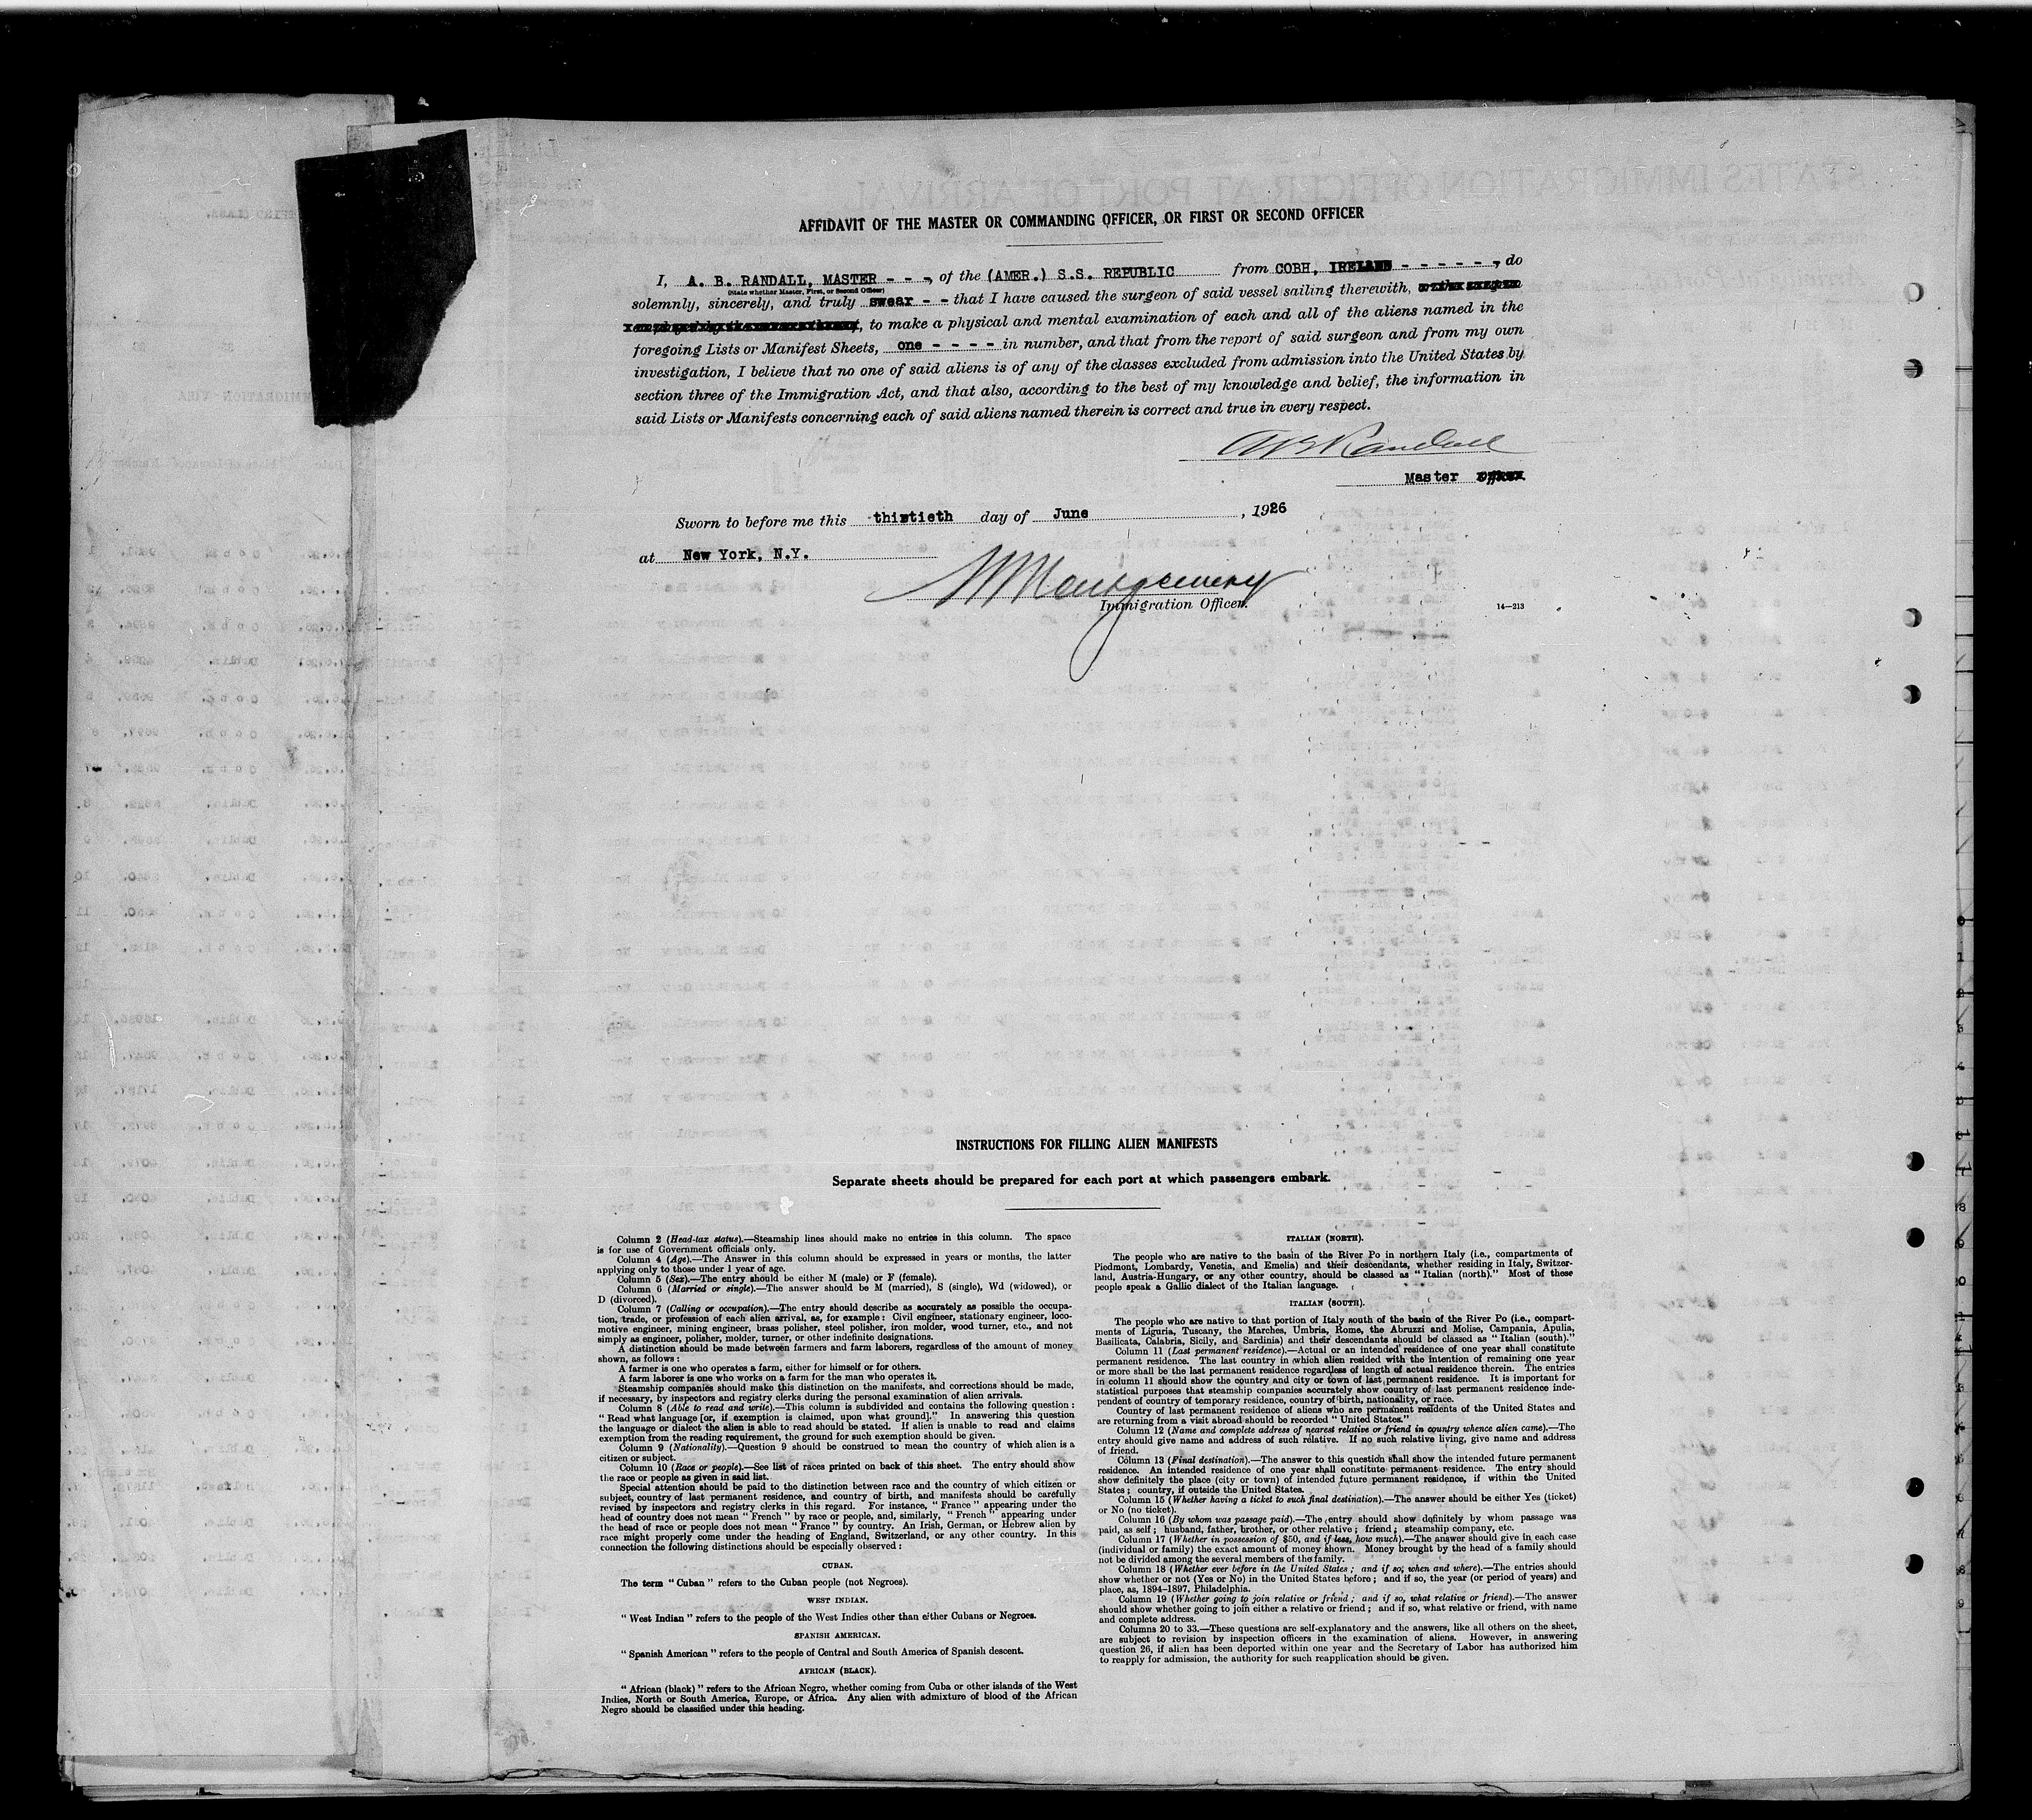 AFFIDAVIT OF THE MASTER OR COMMANDING OFFICER, OR FIRST OR SECOND OFFICER
I, A. B. RANDALL, MASTER - - -, of the (AMER.) S.S. REPUBLIC from COBH, IRELAND - - - - - -, do
(State whether Master, First, or Second Officer)
solemnly, sincerely, and truly swear - - that I have caused the surgeon of said vessel sailing therewith,
, to make a physical and mental examination of each and all of the aliens named in the
foregoing Lists or Manifest Sheets, one - - - - in number, and that from the report of said surgeon and from my own
investigation, I believe that no one of said aliens is of any of the classes excluded from admission into the United States by
section three of the Immigration Act, and that also, according to the best of my knowledge and belief, the information in
said Lists or Manifests concerning each of said aliens named therein is correct and true in every respect.
A B Randall
Master
Sworn to before me this thirtieth day of June , 1926
at New York, N.Y.
Montgomery
Immigration Officer.
14—213
INSTRUCTIONS FOR FILLING ALIEN MANIFESTS
Separate sheets should be prepared for each port at which passengers embark.
Column 2 (Head-tax status).—Steamship lines should make no entries in this column. The space
is for use of Government officials only.
Column 4 (Age).—The Answer in this column should be expressed in years or months, the latter
applying only to those under 1 year of age.
Column 5 (Sex).—The entry should be either M (male) or F (female).
Column 6 (Married or single).—The answer should be M (married), S (single), Wd (widowed), or
D (divorced).
Column 7 (Calling or occupation).—The entry should describe as accurately as possible the occupa-
tion, trade, or profession of each alien arrival, as, for example: Civil engineer, stationary engineer, loco-
motive engineer, mining engineer, brass polisher, steel polisher, iron molder, wood turner, etc., and not
simply as engineer, polisher, molder, turner, or other indefinite designations.
A distinction should be made between farmers and farm laborers, regardless of the amount of money
shown, as follows:
A farmer is one who operates a farm, either for himself or for others.
A farm laborer is one who works on a farm for the man who operates it.
Steamship companies should make this distinction on the manifests, and corrections should be made,
if necessary, by inspectors and registry clerks during the personal examination of alien arrivals.
Column 8 (Able to read and write).—This column is subdivided and contains the following question:
"Read what language [or, if exemption is claimed, upon what ground]." In answering this question
the language or dialect the alien is able to read should be stated. If alien is unable to read and claims
exemption from the reading requirement, the ground for such exemption should be given.
Column 9 (Nationality).—Question 9 should be construed to mean the country of which alien is a
citizen or subject.
Column 10 (Race or people).—See list of races printed on back of this sheet. The entry should show
the race or people as given in said list.
Special attention should be paid to the distinction between race and the country of which citizen or
subject, country of last permanent residence, and country of birth, and manifests should be carefully
revised by inspectors and registry clerks in this regard. For instance, "France" appearing under the
head of country does not mean "French" by race or people, and, similarly, "French" appearing under
the head of race or people does not mean "France" by country. An Irish, German, or Hebrew alien by
race might properly come under the heading of England, Switzerland, or any other country. In this
connection the following distinctions should be especially observed:
CUBAN.
The term "Cuban" refers to the Cuban people (not Negroes).
WEST INDIAN.
"West Indian" refers to the people of the West Indies other than either Cubans or Negroes.
SPANISH AMERICAN.
"Spanish American" refers to the people of Central and South America of Spanish descent.
AFRICAN (BLACK).
"African (black)" refers to the African Negro, whether coming from Cuba or other islands of the West
Indies, North or South America, Europe, or Africa. Any alien with admixture of blood of the African
Negro should be classified under this heading.
ITALIAN (NORTH).
The people who are native to the basin of the River Po in northern Italy (i.e., compartments of
Piedmont, Lombardy, Venetia, and Emelia) and their descendants, whether residing in Italy, Switzer-
land, Austria-Hungary, or any other country, should be classed as "Italian (north)." Most of these
people speak a Gallic dialect of the Italian language.
ITALIAN (SOUTH).
The people who are native to that portion of Italy south of the basin of the River Po (i.e., compart-
ments of Liguria, Tuscany, the Marches, Umbria, Rome, the Abruzzi and Molise, Campania, Apulia,
Basilicata, Calabria, Sicily, and Sardinia) and their descendants should be classed as "Italian (south)."
Column 11 (Last permanent residence).—Actual or an intended residence of one year shall constitute
permanent residence. The last country in which alien resided with the intention of remaining one year
or more shall be the last permanent residence regardless of length of actual residence therein. The entries
in column 11 should show the country and city or town of last permanent residence. It is important for
statistical purposes that steamship companies accurately show country of last permanent residence inde-
pendent of country of temporary residence, country of birth, nationality, or race.
Country of last permanent residence of aliens who are permanent residents of the United States and
are returning from a visit abroad should be recorded "United States."
Column 12 (Name and complete address of nearest relative or friend in country whence alien came).—The
entry should give name and address of such relative. If no such relative living, give name and address
of friend.
Column 13 (Final destination).—The answer to this question shall show the intended future permanent
residence. An intended residence of one year shall constitute permanent residence. The entry should
show definitely the place (city or town) of intended future permanent residence, if within the United
States; country, if outside the United States.
Column 15 (Whether having a ticket to such final destination).—The answer should be either Yes (ticket)
or No (no ticket).
Column 16 (By whom was passage paid).—The entry should show definitely by whom passage was
paid, as self; husband, father, brother, or other relative; friend; steamship company, etc.
Column 17 (Whether in possession of $50, and if less, how much).—The answer should give in each case
(individual or family) the exact amount of money shown. Money brought by the head of a family should
not be divided among the several members of the family.
Column 18 (Whether ever before in the United States; and if so, when and where).—The entries should
show whether or not (Yes or No) in the United States before; and if so, the year (or period of years) and
place, as, 1894–1897, Philadelphia.
Column 19 (Whether going to join relative or friend; and if so, what relative or friend).—The answer
should show whether going to join either a relative or friend; and if so, what relative or friend, with name
and complete address.
Columns 20 to 33.—These questions are self-explanatory and the answers, like all others on the sheet,
are subject to revision by inspection officers in the examination of aliens. However, in answering
question 26, if alien has been deported within one year and the Secretary of Labor has authorized him
to reapply for admission, the authority for such reapplication should be given.